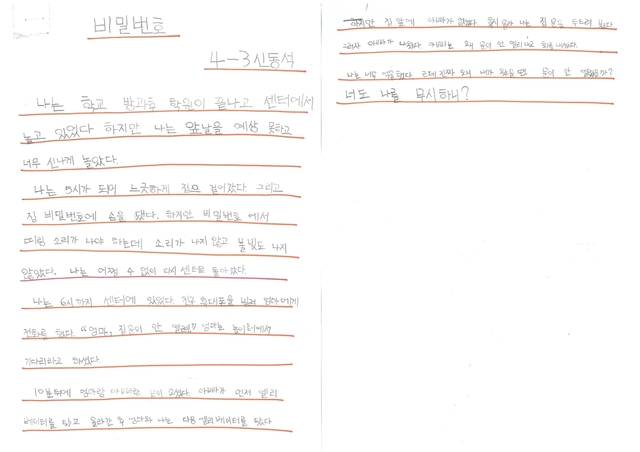 비밀번호
4-3 신동석
나는 학교 방과후 학원이 끝나고 센터에서
놀고 있었다 하지만 나는 앞날을 예상 못하고
너무 신나게 놀았다.
나는 5시가 되어 느긋하게 집으 걸어갔다 그리고
집 비밀번호에 손을 댔다. 하지만 비밀번호 에서
띠링 소리가 나야 하는데 소리가 나지 않고 불빛도 나지
않았다. 나는 어쩔 수 없이 다시 센터로 돌아갔다.
나는 6시까지 센터에 있었다. 친구 휴대폰을 빌려 엄마에게
전화를 했다. "엄마, 집문이 안 열려!" 엄마는 놀이터에서
기다리라고 하셨다.
10분뒤에 엄마랑 아빠랑 같이 오셨다. 아빠가 먼저 엘리
베이터를 타고 올라간 후 엄마와 나는 다음 엘리베이터를 탔다
하지만 집 앞에 아빠가 없었다. 나는 집 문을 두드려 봤다
그러자 아빠가 나왔다. 아빠는 왜 문이 안 열리냐고 화를 내셨다.
나는 너무 억울했다. 근데 진짜 왜 내가 했을 땐 문이 안 열렸을까?
너도 나를 무시하니?